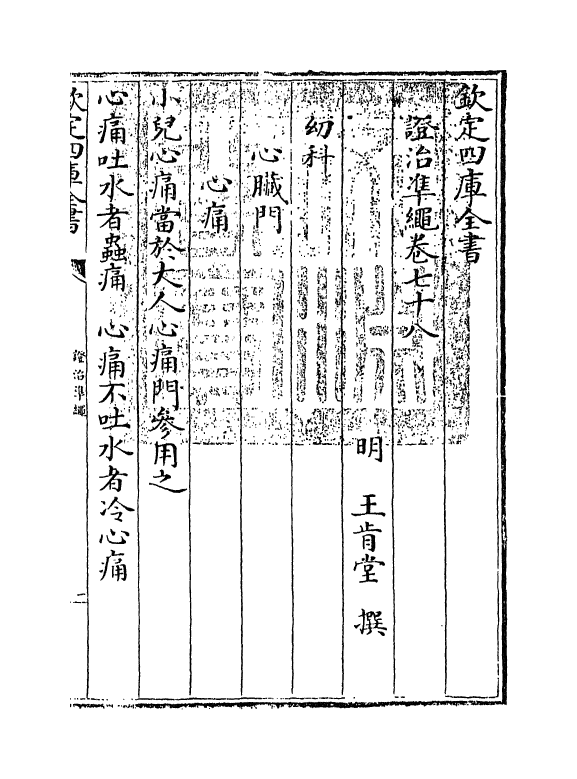 欽定四庫全書
證治準繩卷七十八
明 王肯堂 撰
幼科
心臟門
心痛
小兒心痛當於大人心痛門參用之
心痛吐水者蟲痛 心痛不吐水者冷心痛
欽定四庫全書
證治準繩
二